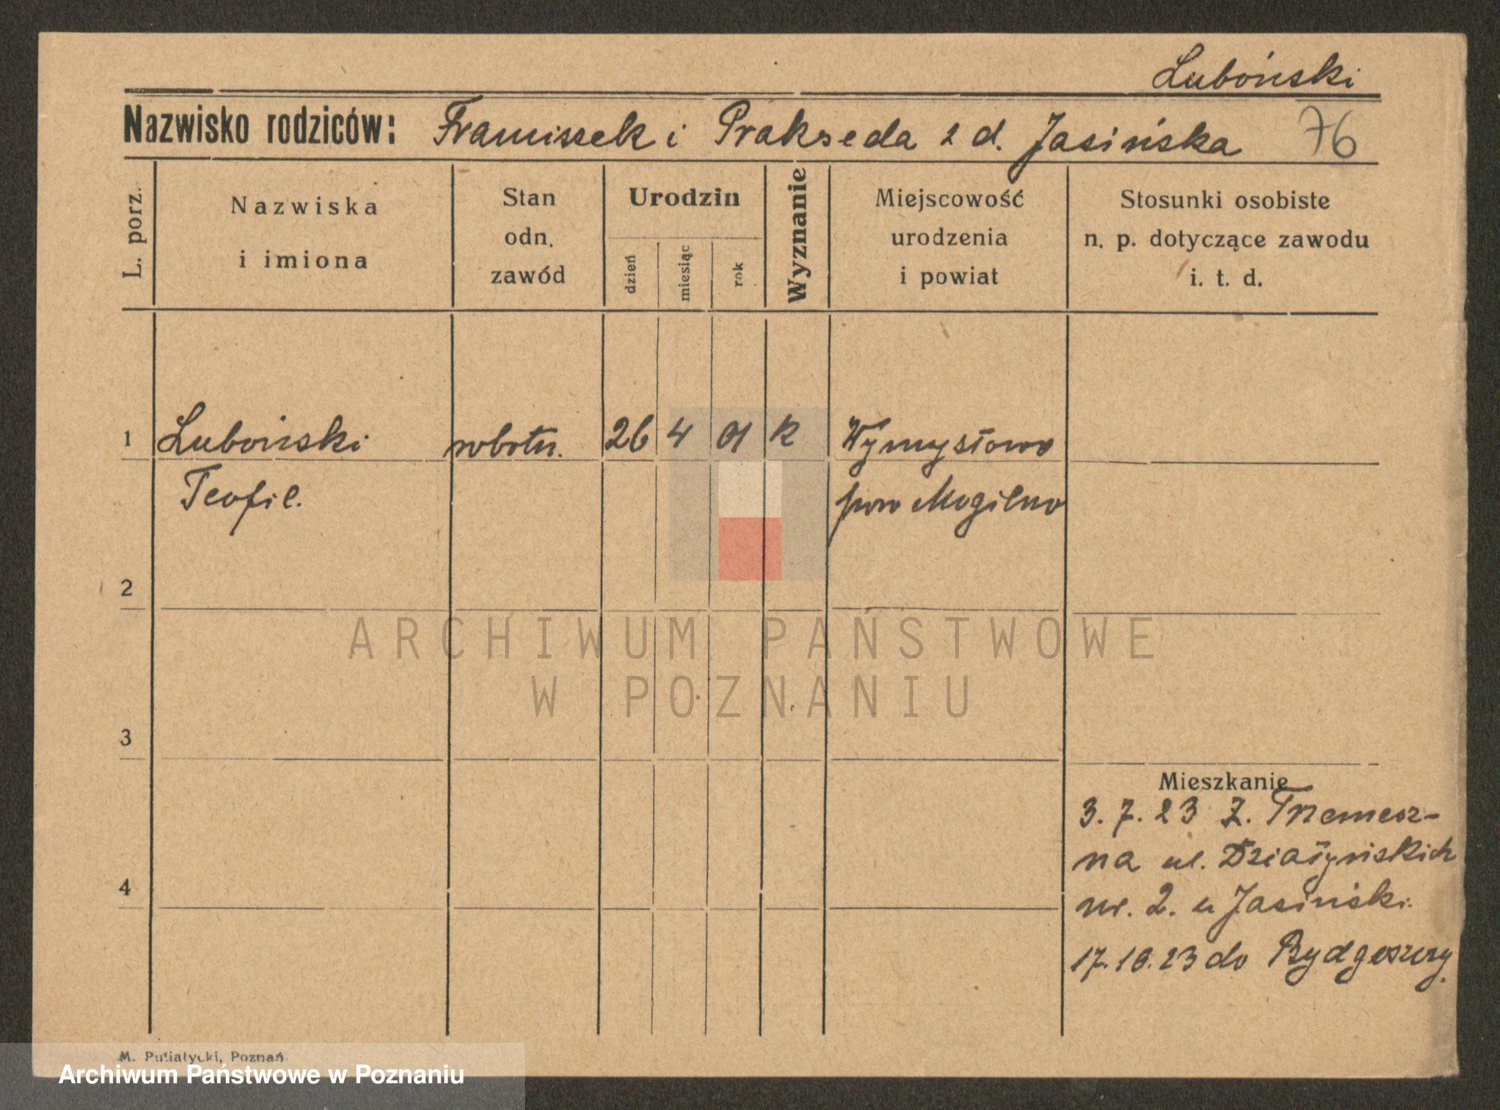 Luboński
Nazwisko rodziców: Franciszek i Prakseda z d. Jasińska 76
L. porz.
Nazwiska
i imiona
Stan
odn.
zawód
Urodzin
dzień
miesiąc
rok
Wyznanie
Miejscowość
urodzenia
i powiat
Stosunki osobiste
n. p. dotyczące zawodu
i. t. d.
1 Luboński robotn. 26 4 01 K Wymysłowo
Teofil. pow Mogilno
2
ARCHIWUM PAŃSTWOWE
W POZNANIU
3
Mieszkanie
3. 7. 23 Z. Trzemesz-
na ul. Działyńskich
4
nr. 2. u Jasiński.
17. 10. 23 do Bydgoszczy.
M. Putiatycki, Poznań
Archiwum Państwowe w Poznaniu